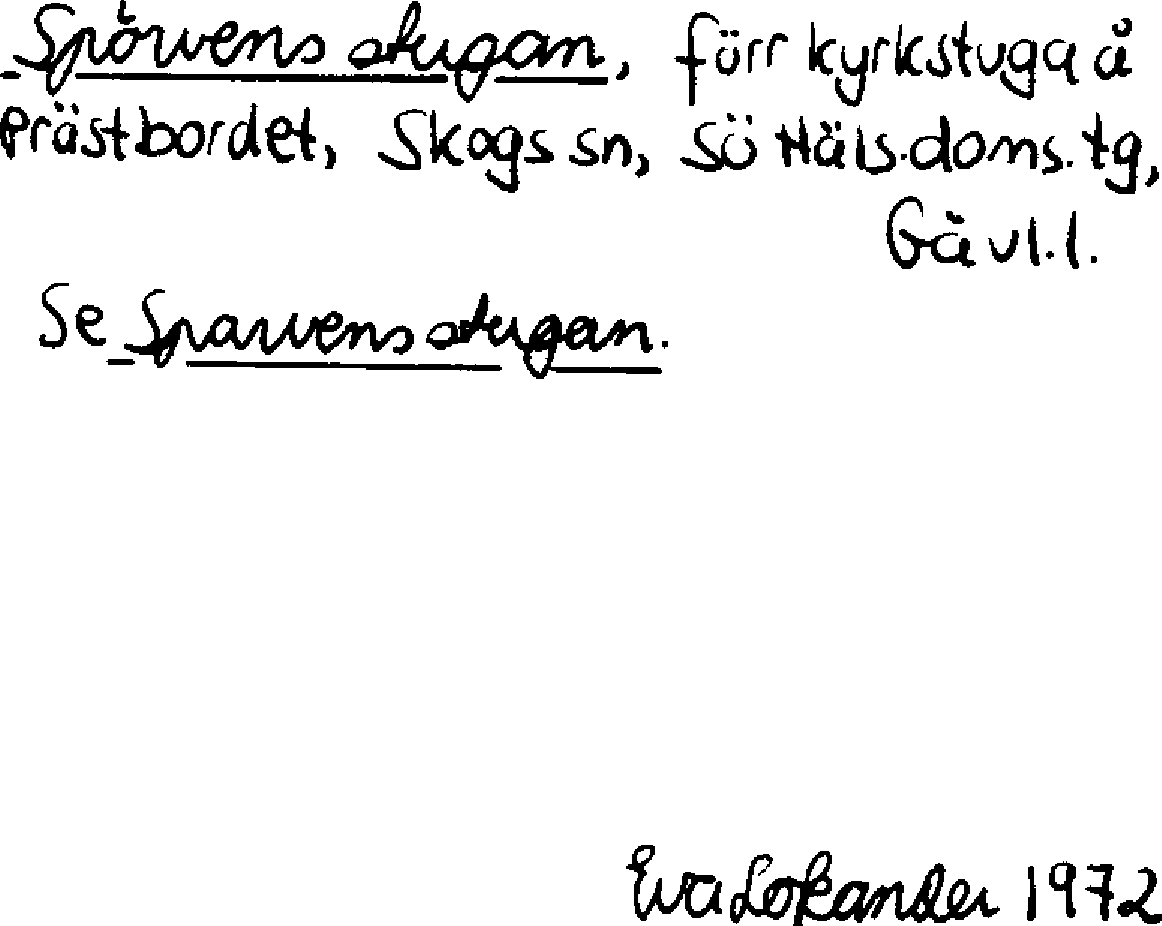 Spörvens stugan, förr kyrkstuga å
Prästbordet, Skogs sn, Sö Häls. doms. tg,
Gävl. l.
Se Sparvens stugan.
Eva Lokander 1972